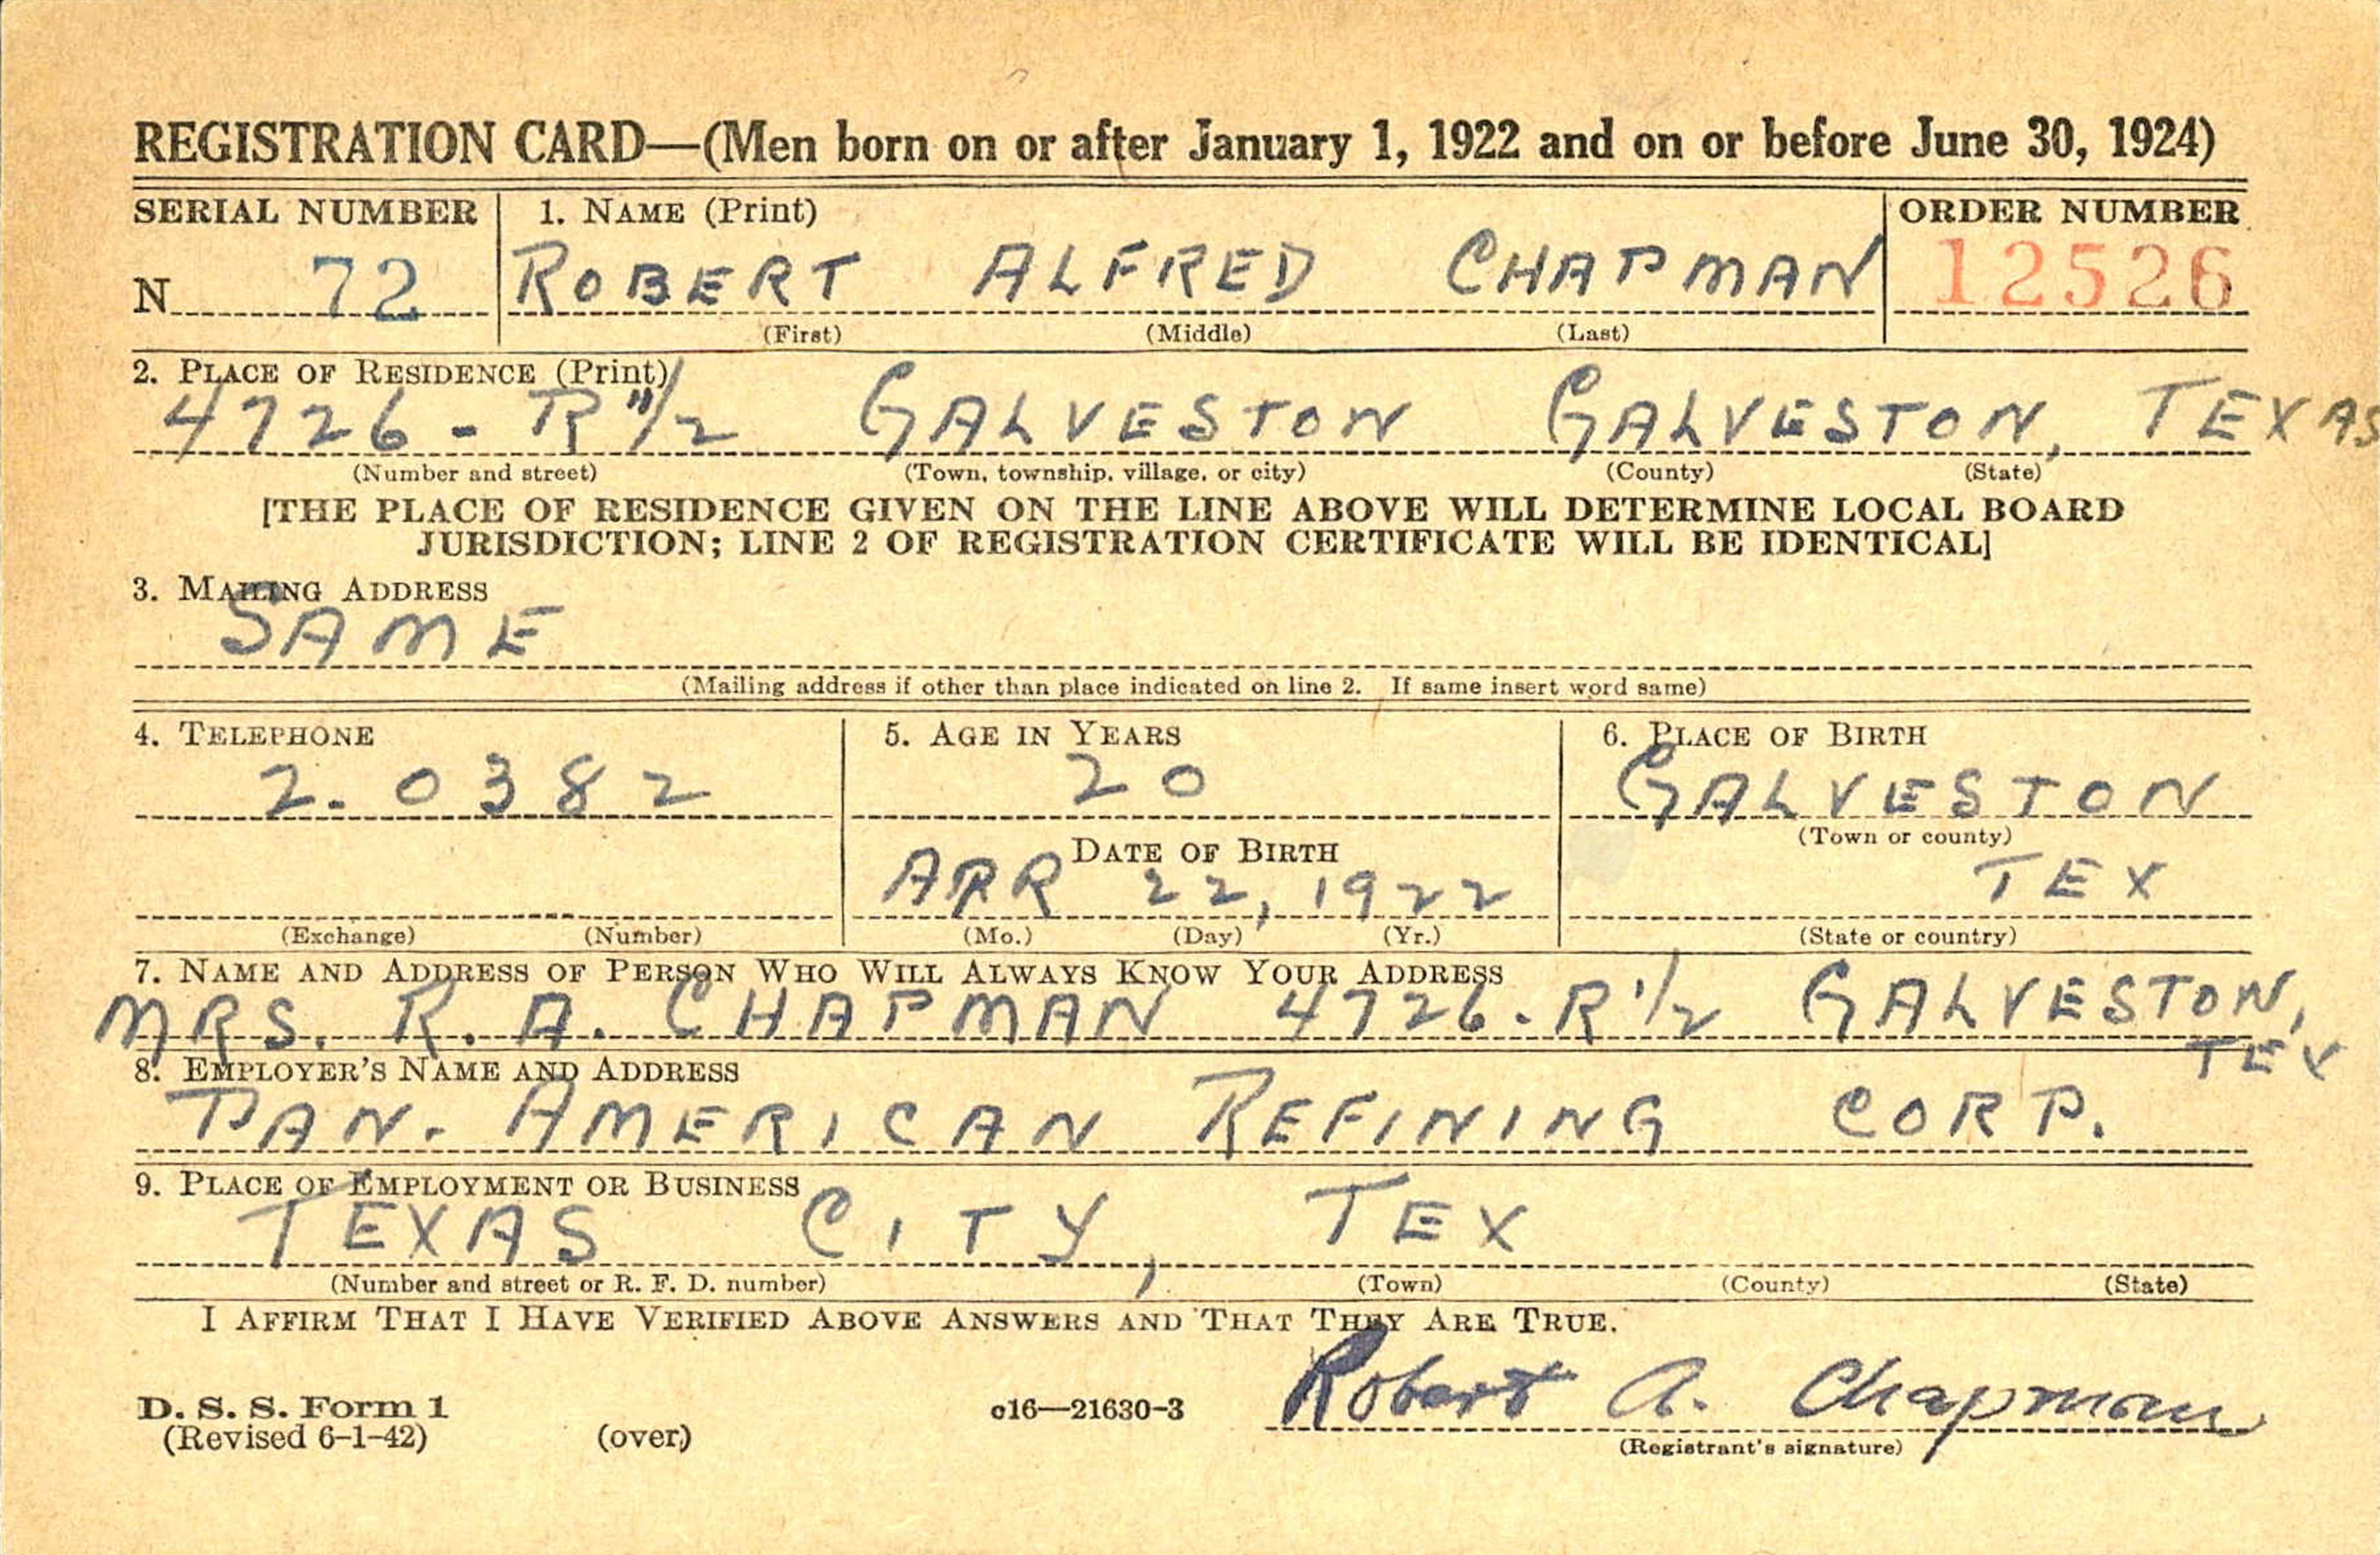 REGISTRATION CARD—(Men born on or after January 1, 1922 and on or before June 30, 1924)
SERIAL NUMBER 1. NAME (Print) ORDER NUMBER
N 72 ROBERT ALFRED CHAPMAN 12526
(First) (Middle) (Last)
2. PLACE OF RESIDENCE (Print)
4726 - R 1/2 GALVESTON GALVESTON, TEXAS
(Number and street) (Town, township, village, or city) (County) (State)
[THE PLACE OF RESIDENCE GIVEN ON THE LINE ABOVE WILL DETERMINE LOCAL BOARD
JURISDICTION; LINE 2 OF REGISTRATION CERTIFICATE WILL BE IDENTICAL]
3. MAILING ADDRESS
SAME
(Mailing address if other than place indicated on line 2. If same insert word same)
4. TELEPHONE 5. AGE IN YEARS 6. PLACE OF BIRTH
2-0382 20 GALVESTON
(Town or county)
DATE OF BIRTH
APR 22, 1922 TEX
(Exchange) (Number) (Mo.) (Day) (Yr.) (State or country)
7. NAME AND ADDRESS OF PERSON WHO WILL ALWAYS KNOW YOUR ADDRESS
MRS. R. A. CHAPMAN 4726-R 1/2 GALVESTON,
TEX
8. EMPLOYER'S NAME AND ADDRESS
PAN-AMERICAN REFINING CORP.
9. PLACE OF EMPLOYMENT OR BUSINESS
TEXAS CITY, TEX
(Number and street or R. F. D. number) (Town) (County) (State)
I AFFIRM THAT I HAVE VERIFIED ABOVE ANSWERS AND THAT THEY ARE TRUE.
Robert A. Chapman
D. S. S. Form 1 c16—21630-3
(Revised 6-1-42) (over) (Registrant's signature)